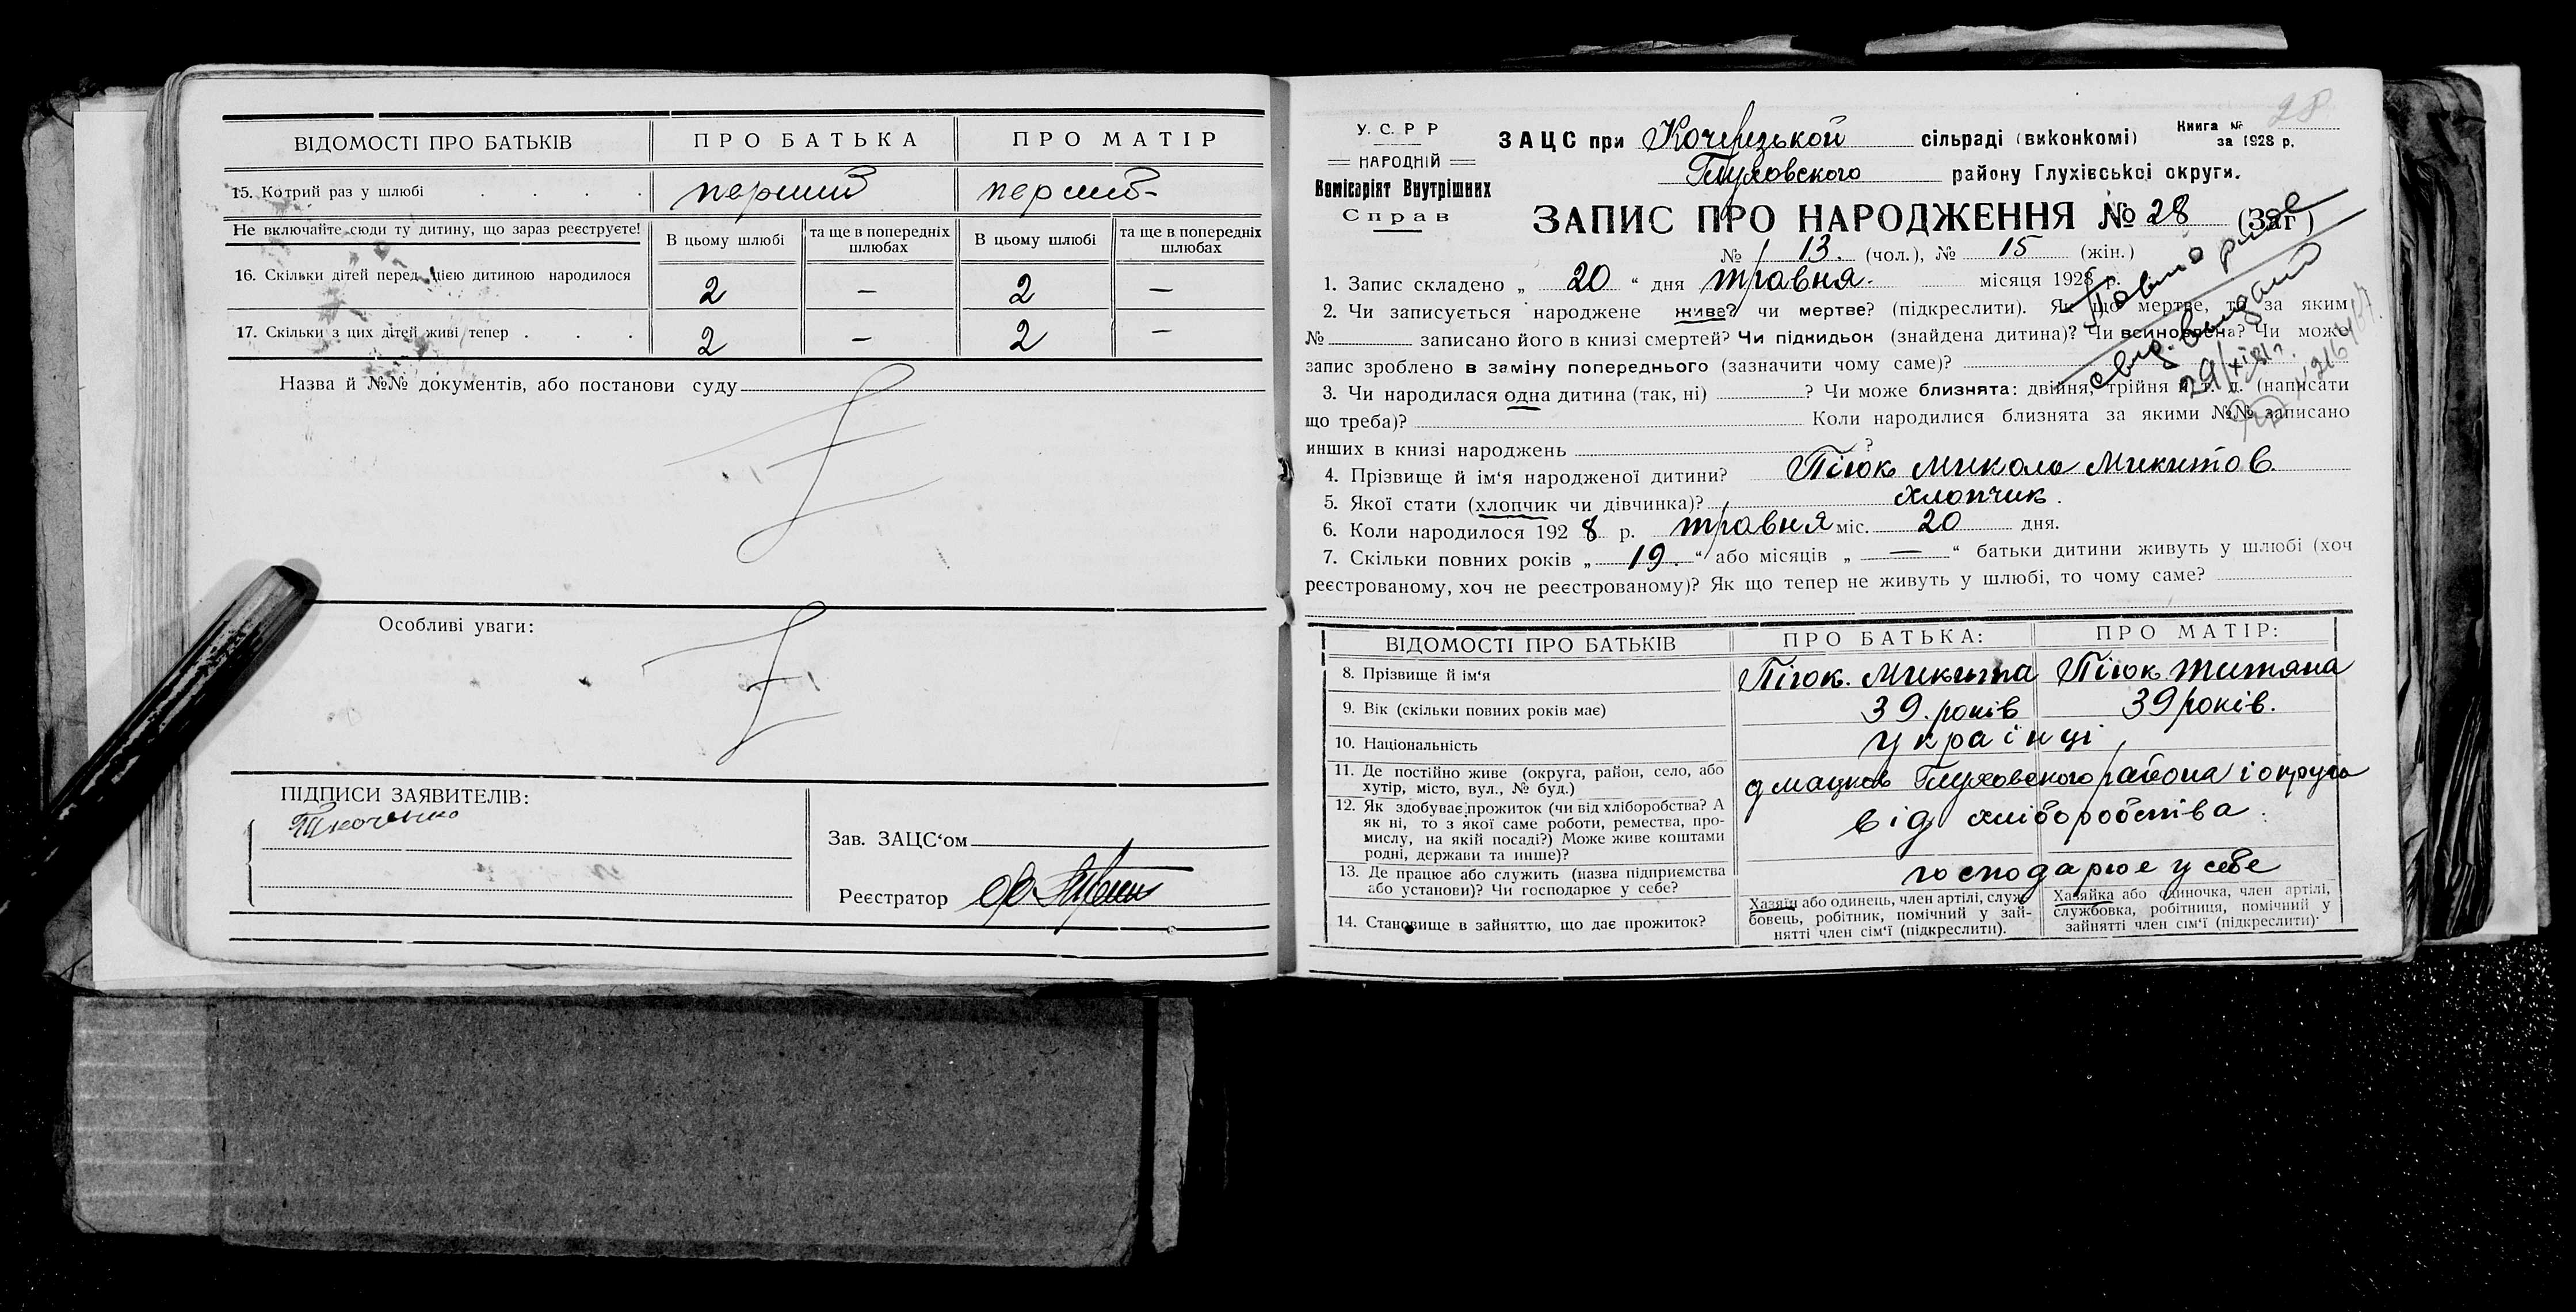 ВІДОМОСТІ ПРО БАТЬКІВ ПРО БАТЬКА ПРО МАТІР
15. Котрий раз у шлюбі перший перший
Не включайте сюди ту дитину, що зараз реєструєте! В цьому шлюбі та ще в попередніх шлюбах В цьому шлюбі та ще в попередніх шлюбах
16. Скільки дітей перед цією дитиною народилося 2 — 2 —
17. Скільки з цих дітей живі тепер 2 — 2 —
Назва й №№ документів, або постанови суду
Особливі уваги:
ПІДПИСИ ЗАЯВИТЕЛІВ:
Зав. ЗАЦС'ом
Реєстратор
У. С. Р Р
НАРОДНІЙ
Комісаріят Внутрішних
Справ
28
ЗАЦС при Кочерезькой сільраді (виконкомі) Книга № за 1928 р.
Глуховского району Глухівської округи.
ЗАПИС ПРО НАРОДЖЕННЯ № 28 (Заг)
№ 13. (чол.), № 15 (жін.)
Повторное
свид. выдано
29/XI 81 г.
1. Запис складено „ 20 “ дня травня. місяця 1928 р.
2. Чи записується народжене живе? чи мертве? (підкреслити). Як що мертве, то за яким
№ записано його в книзі смертей? Чи підкидьок (знайдена дитина)? Чи всиновлена? Чи може
запис зроблено в заміну попереднього (зазначити чому саме)?
3. Чи народилася одна дитина (так, ні) ? Чи може близнята: двійня, трійня й т. д. (написати
що треба)? Коли народилися близнята за якими №№ записано
инших в книзі народжень ?
4. Прізвище й ім'я народженої дитини? Пігюк Микола Микитов.
5. Якої стати (хлопчик чи дівчинка)? хлопчик.
6. Коли народилося 1928 р. травня міс. 20 дня.
7. Скільки повних років „ 19. “ або місяців „ — “ батьки дитини живуть у шлюбі (хоч
реєстрованому, хоч не реєстрованому)? Як що тепер не живуть у шлюбі, то чому саме?
ВІДОМОСТІ ПРО БАТЬКІВ ПРО БАТЬКА: ПРО МАТІР:
8. Прізвище й ім'я Пігюк. Микита Пігюк Титяна
9. Вік (скільки повних років має) 39. років 39 років.
10. Національність українці
11. Де постійно живе (округа, район, село, або
хутір, місто, вул., № буд.) Глуховского района і округа
12. Як здобуває прожиток (чи від хліборобства? А
як ні, то з якої саме роботи, ремества, про-
мислу, на якій посаді?) Може живе коштами
родні, держави та инше)? від хліборобства.
13. Де працює або служить (назва підприємства
або установи)? Чи господарює у себе? господарює у себе
14. Становище в зайняттю, що дає прожиток?
Хазяїн або одинець, член артілі, служ-
бовець, робітник, помічний у зай-
нятті член сім'ї (підкреслити).
Хазяйка або одиночка, член артілі,
службовка, робітниця, помічний у
зайнятті член сім'ї (підкреслити).